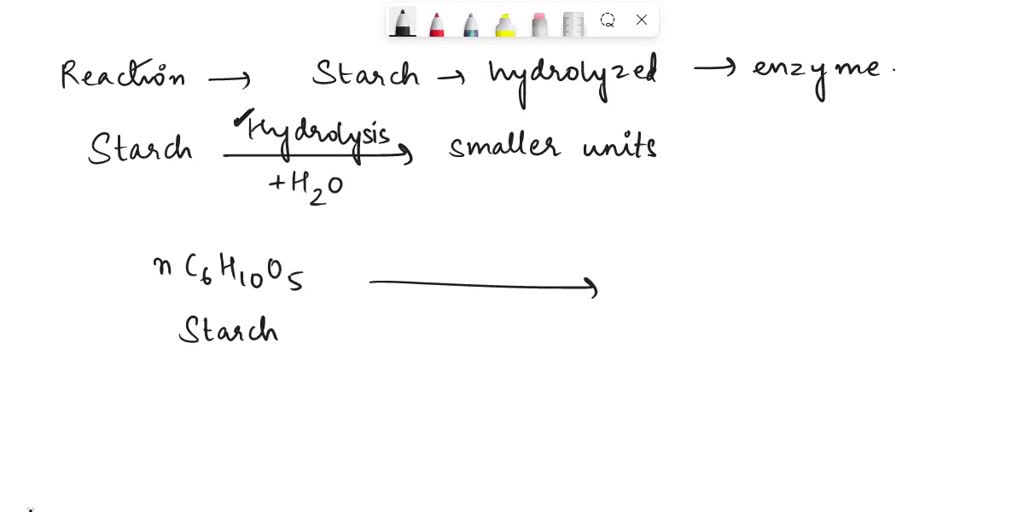 Reaction → Starch → hydrolyzed → enzyme.
Starch Hydrolysis +H₂O → smaller units
n C₆H₁₀O₅ →
Starch